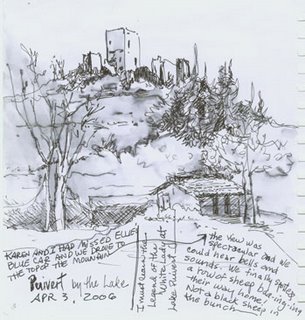 KAREN AND I HAD MISSED ELLE'S
BLUE CAR AND WE DROVE TO
THE TOP OF THE MOUNTAIN
Puivert by the Lake
APR. 3. 2006
Legend of the
White Lady at
Lake Puivert
the view was
spectacular and we
could hear bells and
sounds. We finally spotted
a row of sheep
their way home.
Not a black sheep in
the bunch